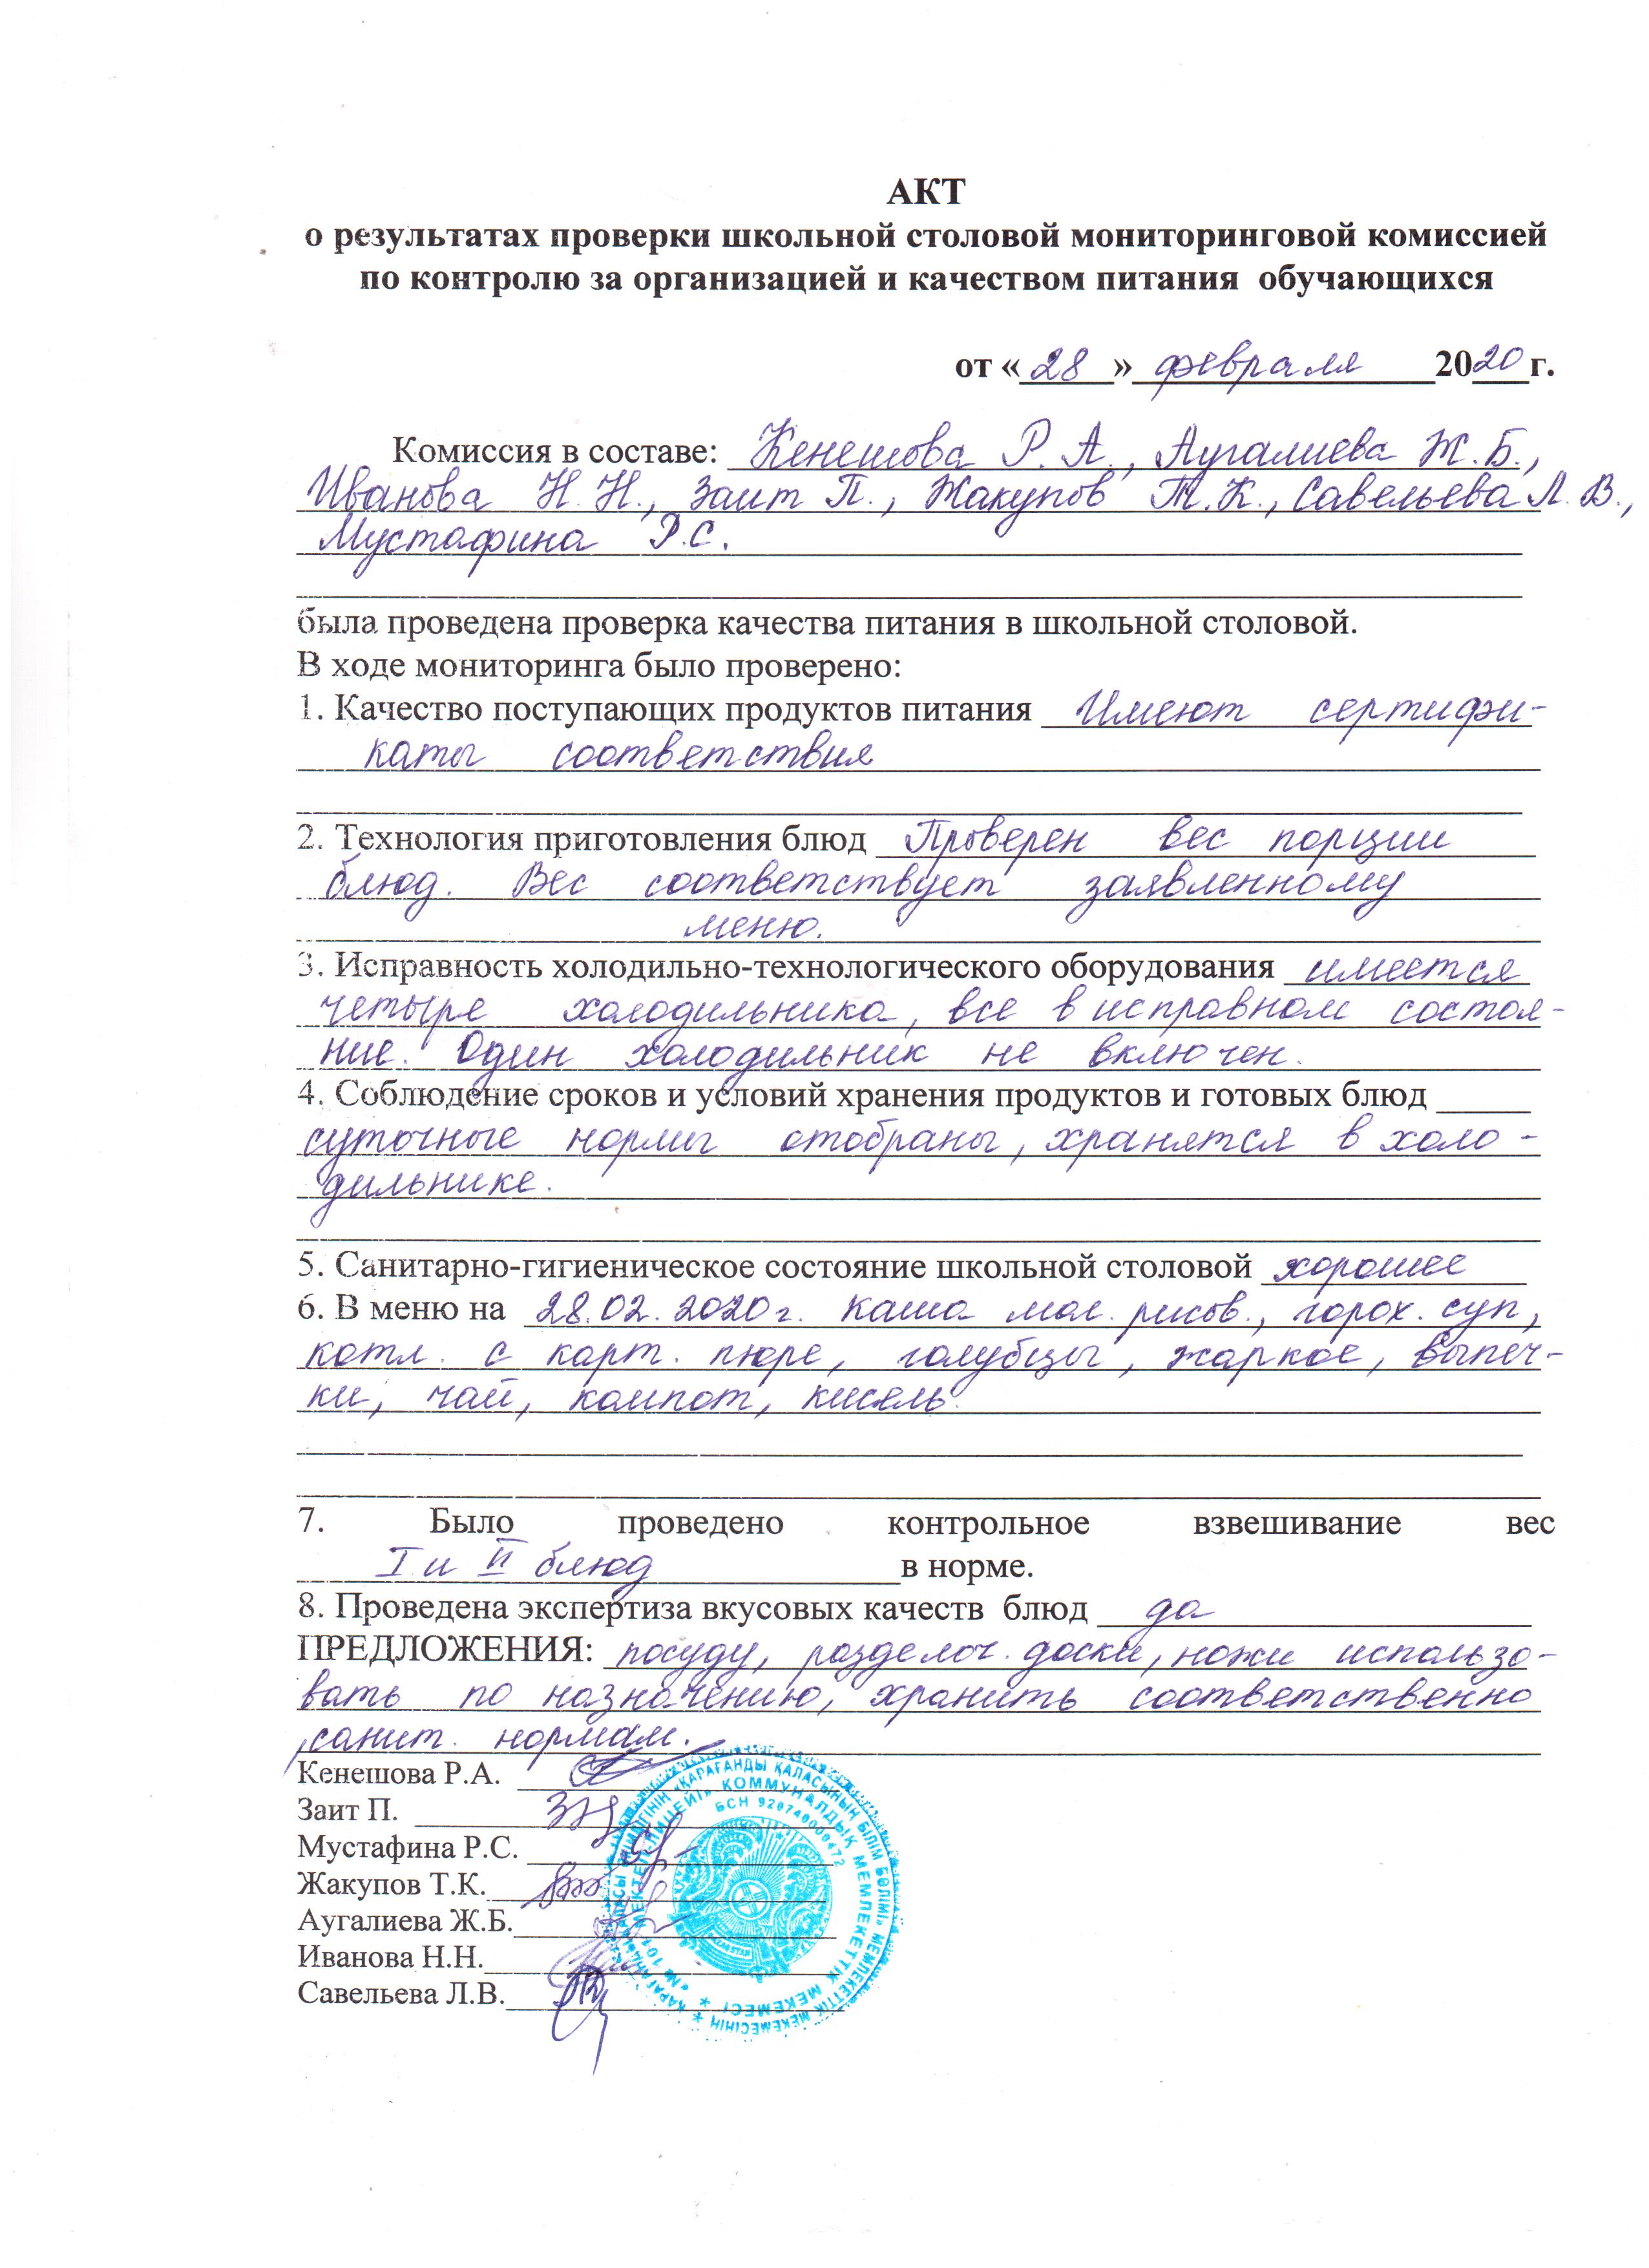 АКТ
о результатах проверки школьной столовой мониторинговой комиссией
по контролю за организацией и качеством питания обучающихся
от «28» февраля 2020 г.
Комиссия в составе: Кенешова Р. А., Аугалиева Ж. Б.,
Иванова Н. Н., Заит П., Жакупов Т. К., Савельева Л. В.,
Мустафина Р. С.
была проведена проверка качества питания в школьной столовой.
В ходе мониторинга было проверено:
1. Качество поступающих продуктов питания Имеют сертифи-
каты соответствия
2. Технология приготовления блюд Проверен вес порции
блюд. Вес соответствует заявленному
меню.
3. Исправность холодильно-технологического оборудования имеется
четыре холодильника, все в исправном состоя-
ние. Один холодильник не включен.
4. Соблюдение сроков и условий хранения продуктов и готовых блюд
суточные нормы отобраны, хранятся в холо-
дильнике.
5. Санитарно-гигиеническое состояние школьной столовой хорошее
6. В меню на 28.02.2020 г. каша мол. рисов., горох. суп,
котл. с карт. пюре, голубцы, жаркое, выпеч-
ки, чай, компот, кисель.
7. Было проведено контрольное взвешивание вес
I и II блюд в норме.
8. Проведена экспертиза вкусовых качеств блюд да
ПРЕДЛОЖЕНИЯ: посуду, разделоч. доски, ножи использо-
вать по назначению, хранить соответственно
санит. нормам.
Кенешова Р.А.
Заит П.
Мустафина Р.С.
Жакупов Т.К.
Аугалиева Ж.Б.
Иванова Н.Н.
Савельева Л.В.
«ҚАРАҒАНДЫ ҚАЛАСЫНЫҢ БІЛІМ БӨЛІМІ» МЕМЛЕКЕТТІК МЕКЕМЕСІНІҢ
КОММУНАЛДЫҚ МЕМЛЕКЕТТІК МЕКЕМЕСІ